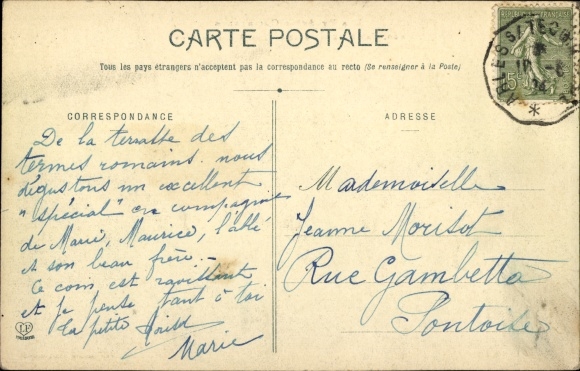 CARTE POSTALE
Tous les pays étrangers n'acceptent pas la correspondance au recto (Se renseigner à la Poste)
CORRESPONDANCE
De la terrasse des
termes romains. nous
dégustons un excellent
"spécial" en compagnie
de Marie, Maurice, l'abbé
et son beau frère.
Ce coin, est ravissant
et je pense tant à toi
la petite
Marie
ADRESSE
Mademoiselle
Jeanne Morisot
Rue Gambetta
Pontoise
ARLES S/TECH
15c